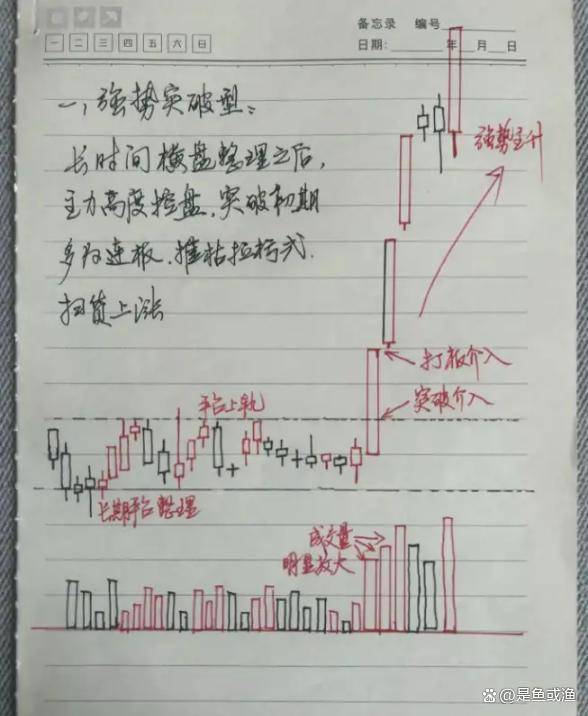 备忘录 编号
一 二 三 四 五 六 日
日期: 年 月 日
一，强势突破型：
长时间横盘整理之后，
主力高度控盘，突破初期
多为连板、摧枯拉朽式
扫货上涨
强势主升
打板介入
突破介入
平台上轨
长期平台整理
成交量
明显放大
是鱼或渔